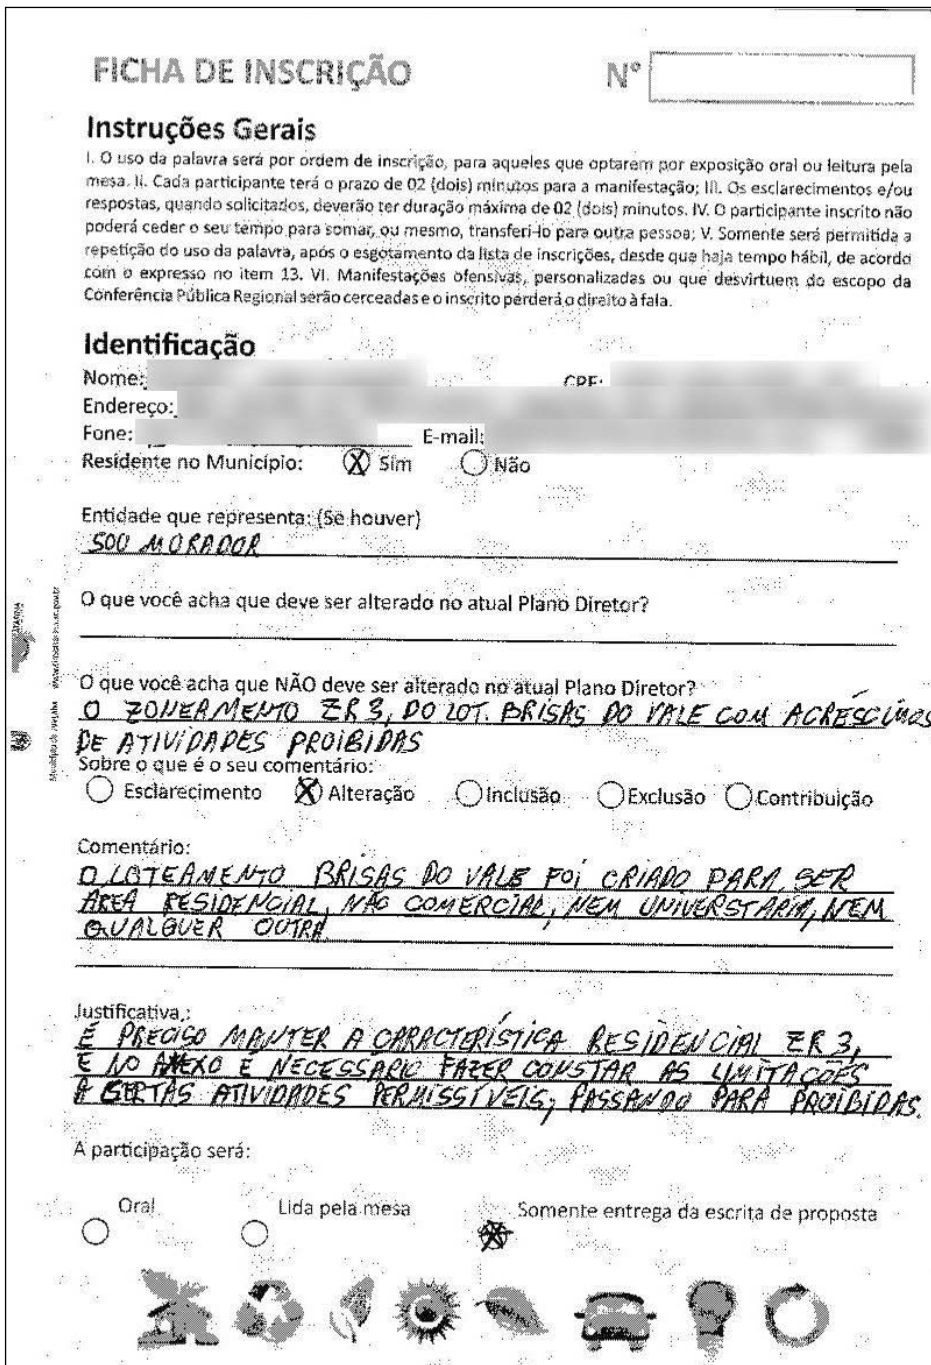 FICHA DE INSCRIÇÃO
Nº
Instruções Gerais
I. O uso da palavra será por ordem de inscrição, para aqueles que optarem por exposição oral ou leitura pela
mesa. II. Cada participante terá o prazo de 02 (dois) minutos para a manifestação; III. Os esclarecimentos e/ou
respostas, quando solicitados, deverão ter duração máxima de 02 (dois) minutos. IV. O participante inscrito não
poderá ceder o seu tempo para somar, ou mesmo, transferi-lo para outra pessoa; V. Somente será permitida a
repetição do uso da palavra, após o esgotamento da lista de inscrições, desde que haja tempo hábil, de acordo
com o expresso no item 13. VI. Manifestações ofensivas, personalizadas ou que desvirtuem do escopo da
Conferência Pública Regional serão cerceadas e o inscrito perderá o direito à fala.
Identificação
Nome: CPF:
Endereço:
Fone: E-mail:
Residente no Município: X Sim Não
Entidade que representa: (Se houver)
SOU MORADOR
O que você acha que deve ser alterado no atual Plano Diretor?
O que você acha que NÃO deve ser alterado no atual Plano Diretor?
O ZONEAMENTO ZR3, DO LOT. BRISAS DO VALE COM ACRESCIMOS
DE ATIVIDADES PROIBIDAS
Sobre o que é o seu comentário:
Esclarecimento X Alteração Inclusão Exclusão Contribuição
Comentário:
O LOTEAMENTO BRISAS DO VALE FOI CRIADO PARA SER
ÁREA RESIDENCIAL, NÃO COMERCIAL, NEM UNIVERSTARIA, NEM
QUALQUER OUTRA.
Justificativa:
É PRECISO MANTER A CARACTERÍSTICA RESIDENCIAL ZR3,
E NO ANEXO É NECESSÁRIO FAZER CONSTAR AS LIMITAÇÕES
A CERTAS ATIVIDADES PERMISSÍVEIS, PASSANDO PARA PROIBIDAS.
A participação será:
Oral Lida pela mesa X Somente entrega da escrita de proposta